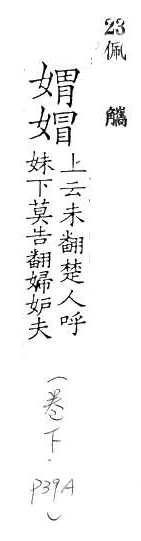 23
佩觿
媦媢
上云未翻楚人呼
妹下莫告翻婦妒夫
（卷下．
P39A）